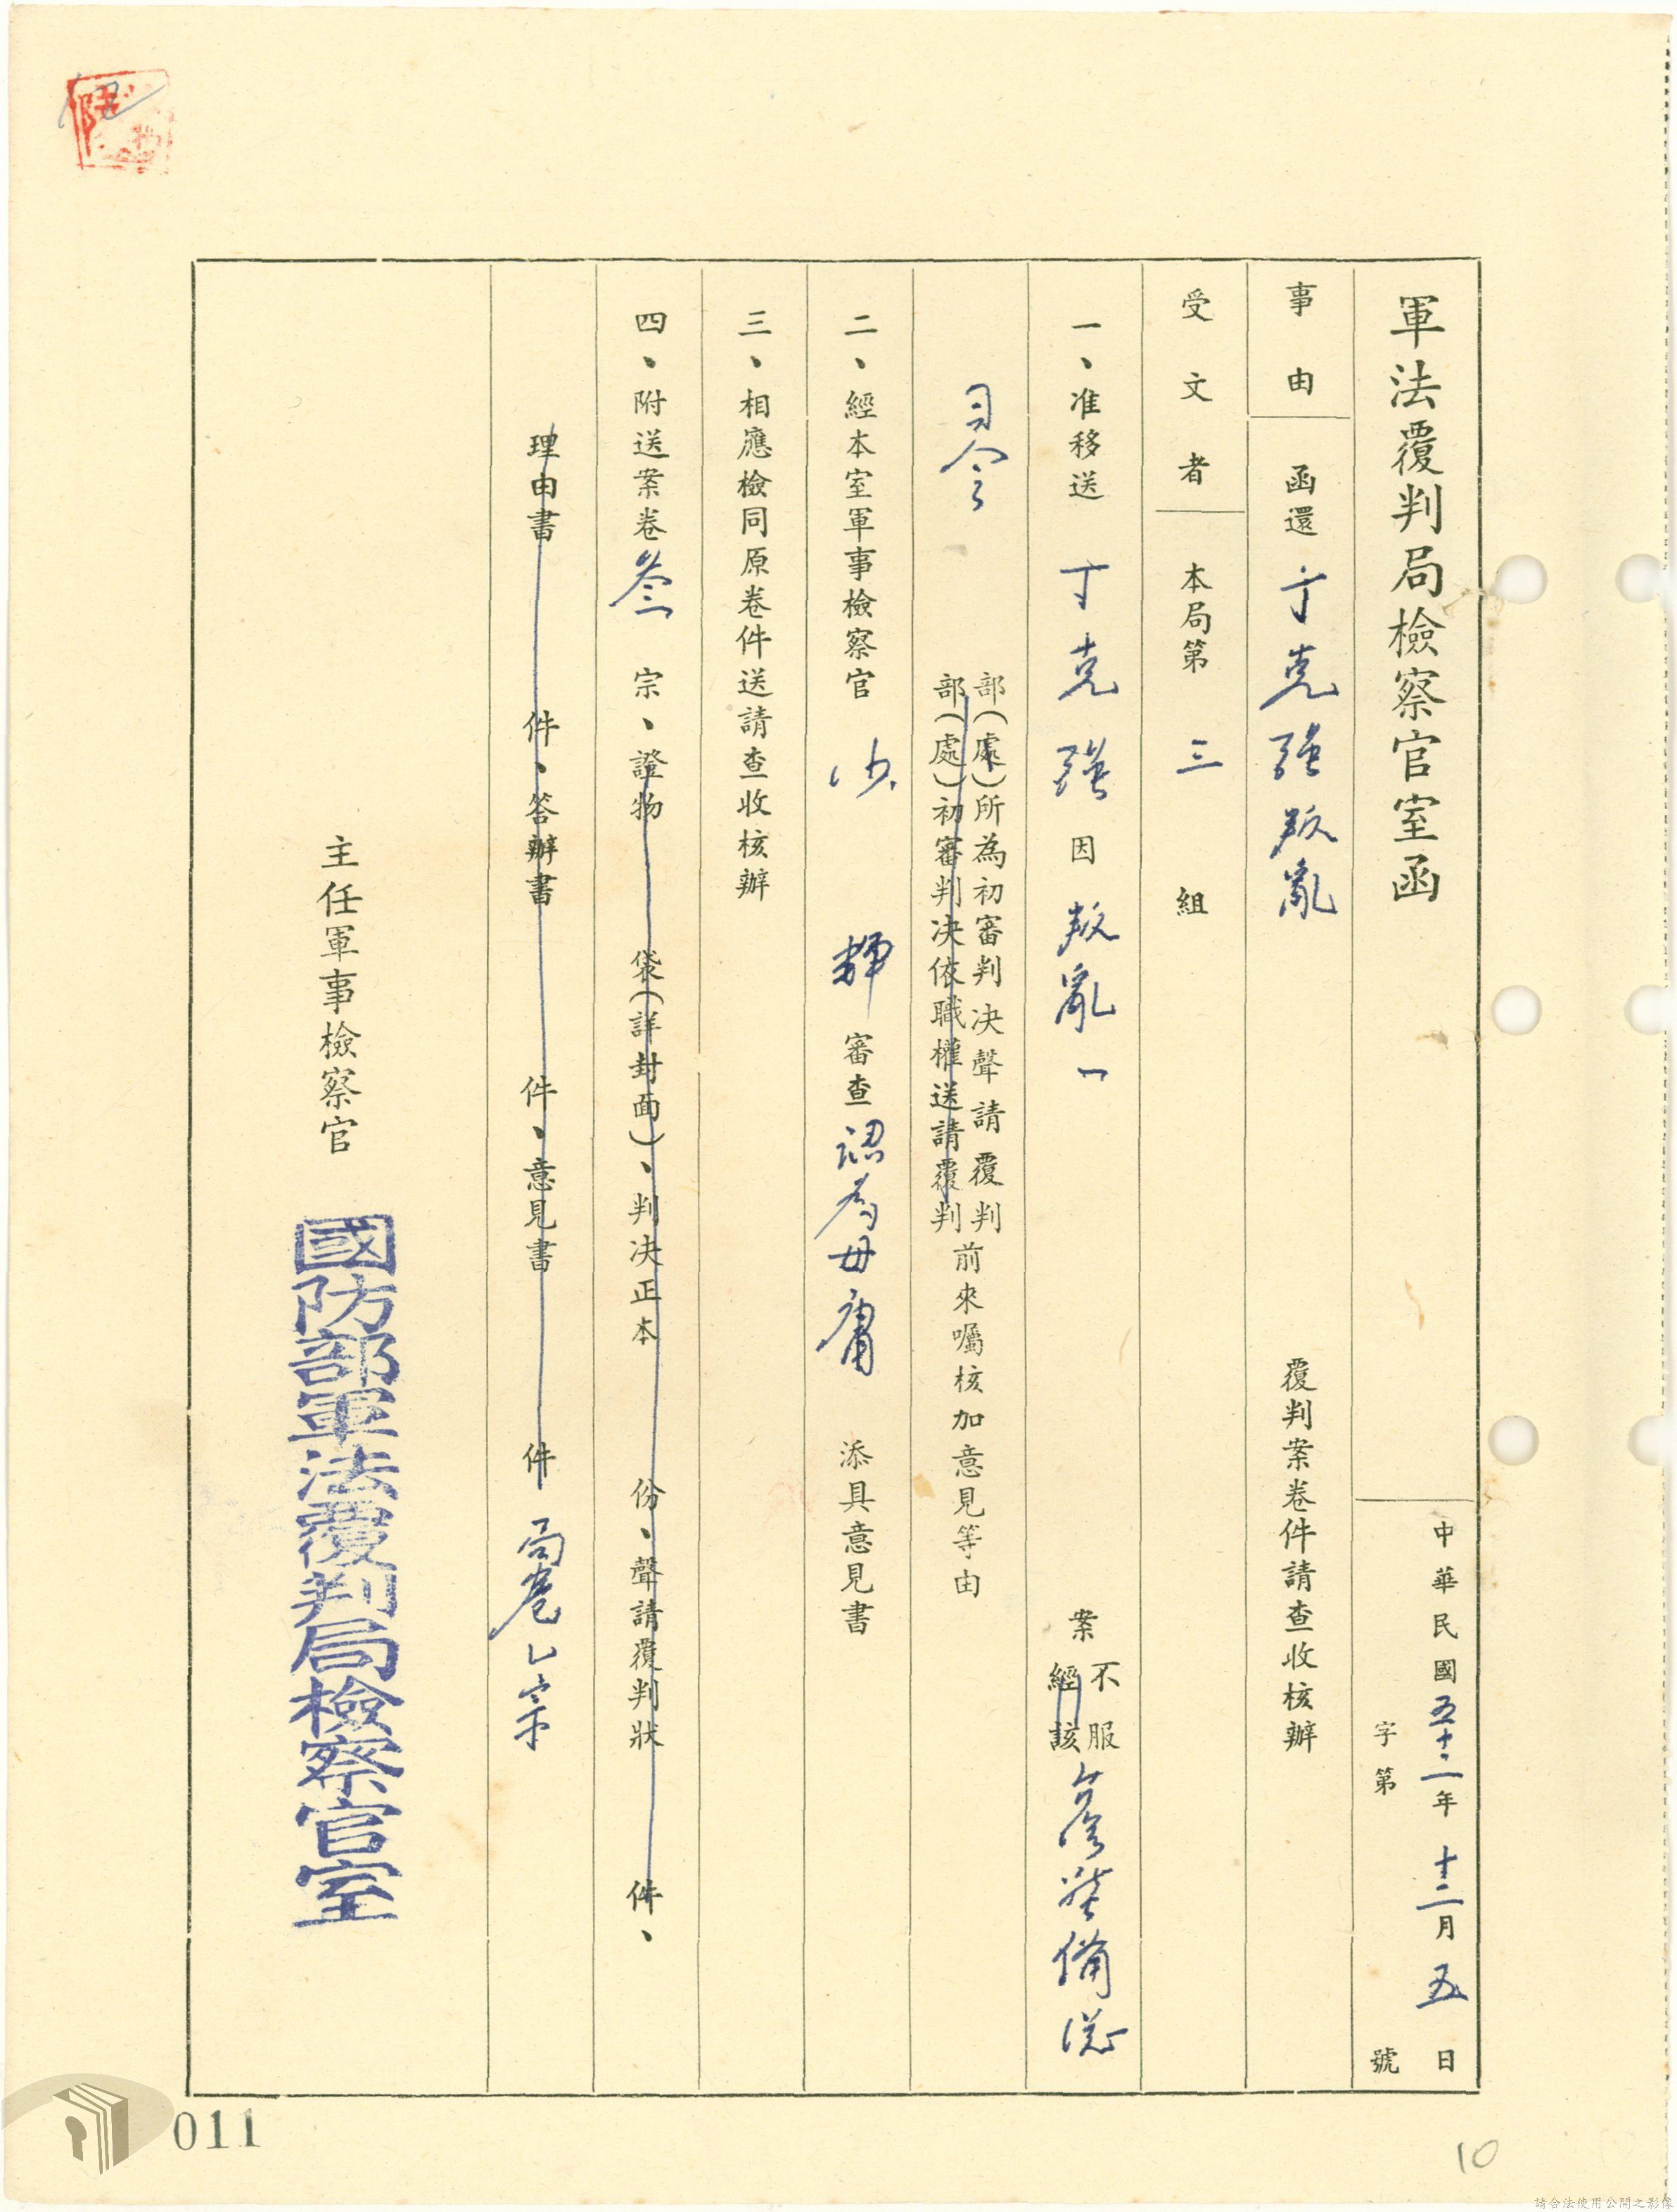 軍法覆判局檢察官室函
中華民國五十二年十二月五日
字第 號
事由 函還 丁克強叛亂 覆判案卷件請查收核辦
受文者 本局第 三 組
一、准移送 丁克強 因 叛亂一 案 不服
經該
臺灣警備總
司令
部(處)所為初審判決聲請覆判
部(處)初審判決依職權送請覆判
前來囑核加意見等由
二、經本室軍事檢察官 沙 輝 審查 認為毋庸 添具意見書
三、相應檢同原卷件送請查收核辦
四、附送案卷 叁 宗、證物 袋(詳封面)、判決正本 份、聲請覆判狀 件、
理由書 件、答辯書 件、意見書 件 局卷乙宗
主任軍事檢察官 國防部軍法覆判局檢察官室
011
10
請合法使用公開之影像